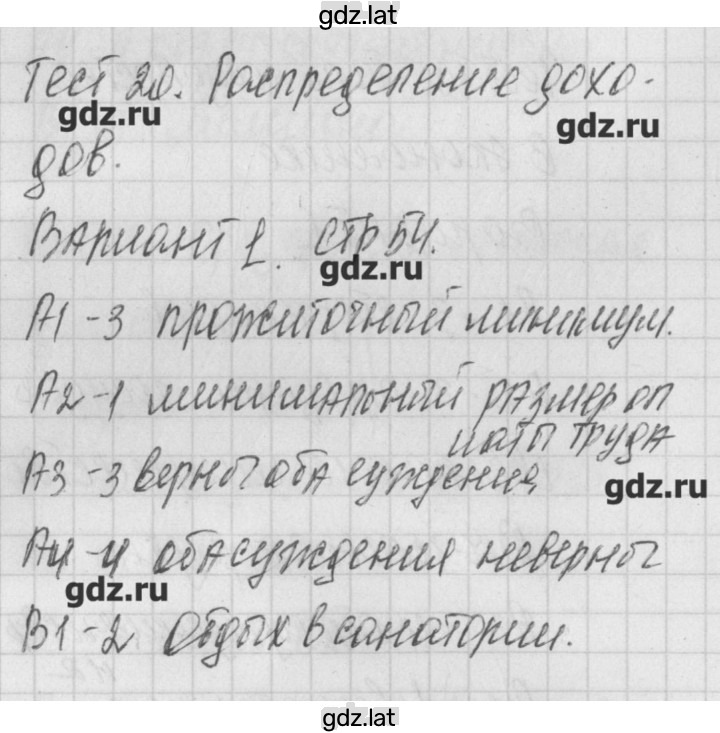 gdz.lat
Тест 20. Распределение дохо-
gdz.ru
gdz.ru
дов.
Вариант 1. стр 54.
gdz.ru
А1 -3 прожиточный минимум.
А2-1 минимальный размер оп
латы труда
А3 -3 верны оба суждения
gdz.ru
А4 -4 оба суждения неверны
gdz.ru
В1-2 Отдых в санатории.
gdz.lat